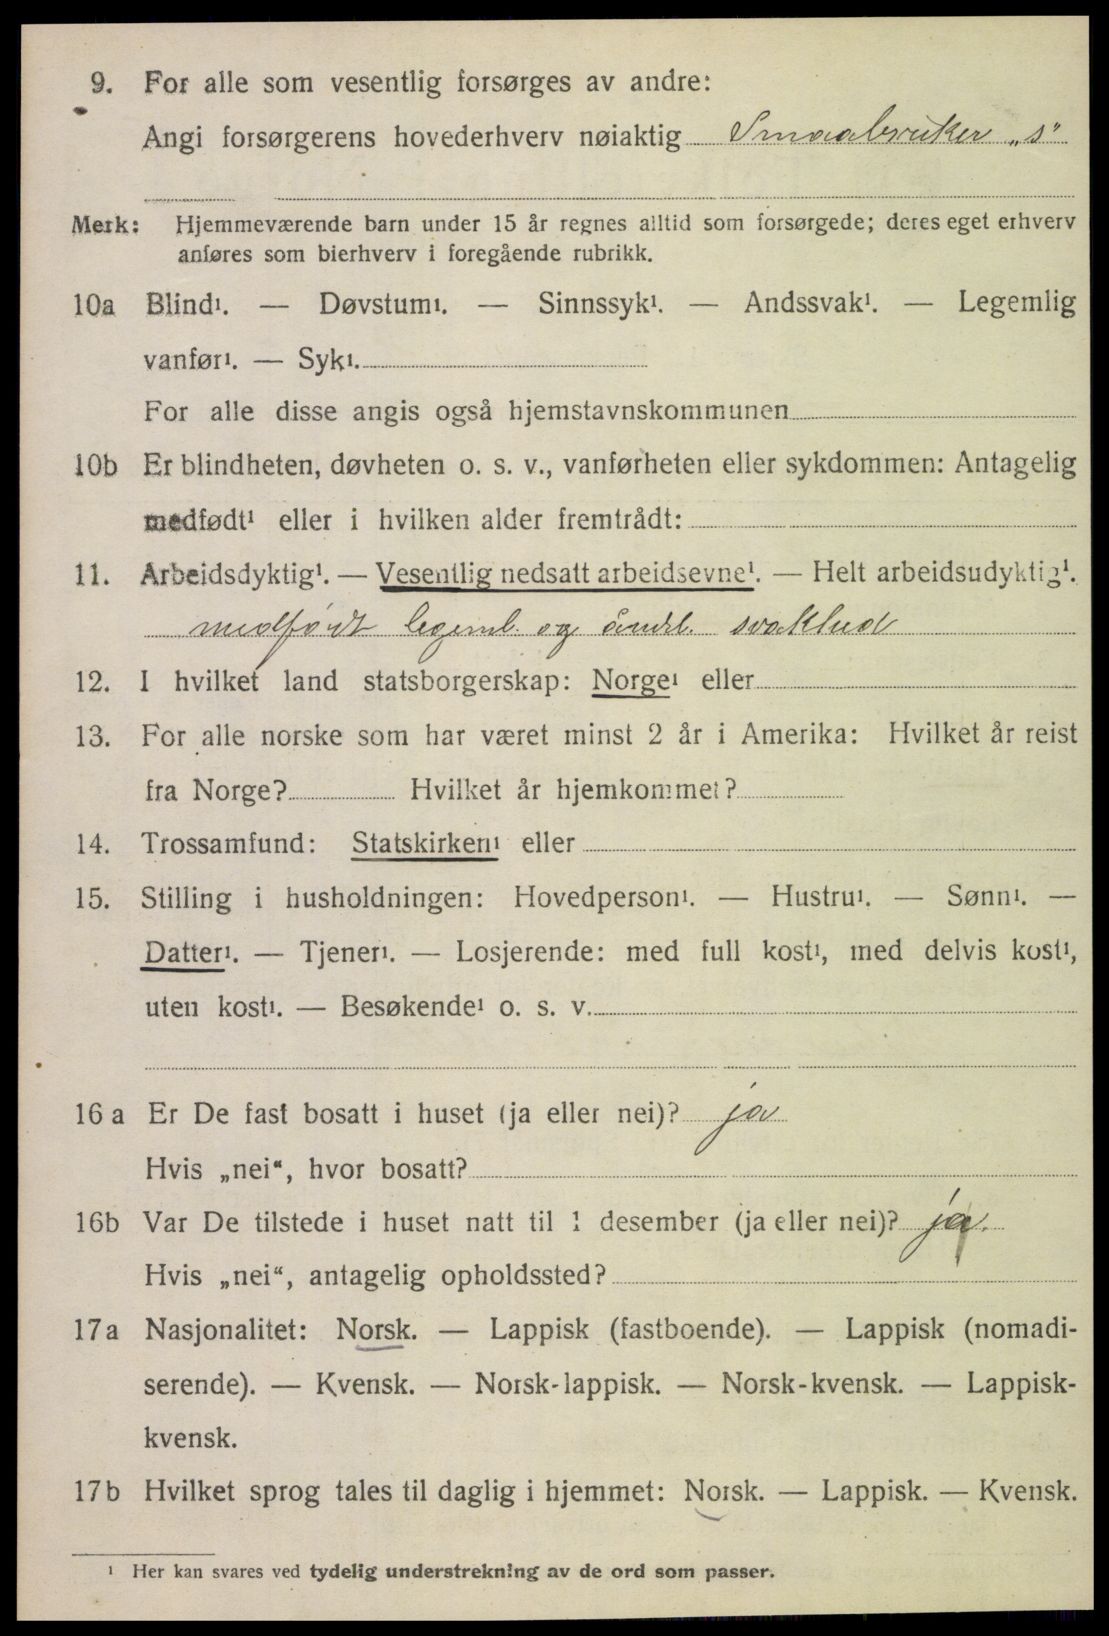 9. For alle som vesentlig forsørges av andre:
Angi forsørgerens hovederhverv nøiaktig Smaabruker „s"
Merk: Hjemmeværende barn under 15 år regnes alltid som forsørgede; deres eget erhverv
anføres som bierhverv i foregående rubrikk.
10a Blind¹. — Døvstum¹. — Sinnssyk¹. — Andssvak¹. — Legemlig
vanfør¹. — Syk¹.
For alle disse angis også hjemstavnskommunen
10b Er blindheten, døvheten o. s. v., vanførheten eller sykdommen: Antagelig
medfødt¹ eller i hvilken alder fremtrådt:
11. Arbeidsdyktig¹. — Vesentlig nedsatt arbeidsevne¹. — Helt arbeidsudyktig¹.
medfødt legeml. og åndel. svakhed
12. I hvilket land statsborgerskap: Norge¹ eller
13. For alle norske som har været minst 2 år i Amerika: Hvilket år reist
fra Norge? Hvilket år hjemkommet?
14. Trossamfund: Statskirken¹ eller
15. Stilling i husholdningen: Hovedperson¹. — Hustru¹. — Sønn¹. —
Datter¹. — Tjener¹. — Losjerende: med full kost¹, med delvis kost¹,
uten kost¹. — Besøkende¹ o. s. v.
16 a Er De fast bosatt i huset (ja eller nei)? ja
Hvis „nei“, hvor bosatt?
16b Var De tilstede i huset natt til 1 desember (ja eller nei)? ja.
Hvis „nei“, antagelig opholdssted?
17a Nasjonalitet: Norsk. — Lappisk (fastboende). — Lappisk (nomadi-
serende). — Kvensk. — Norsk-lappisk. — Norsk-kvensk. — Lappisk-
kvensk.
17b Hvilket sprog tales til daglig i hjemmet: Norsk. — Lappisk. — Kvensk.
¹ Her kan svares ved tydelig understrekning av de ord som passer.